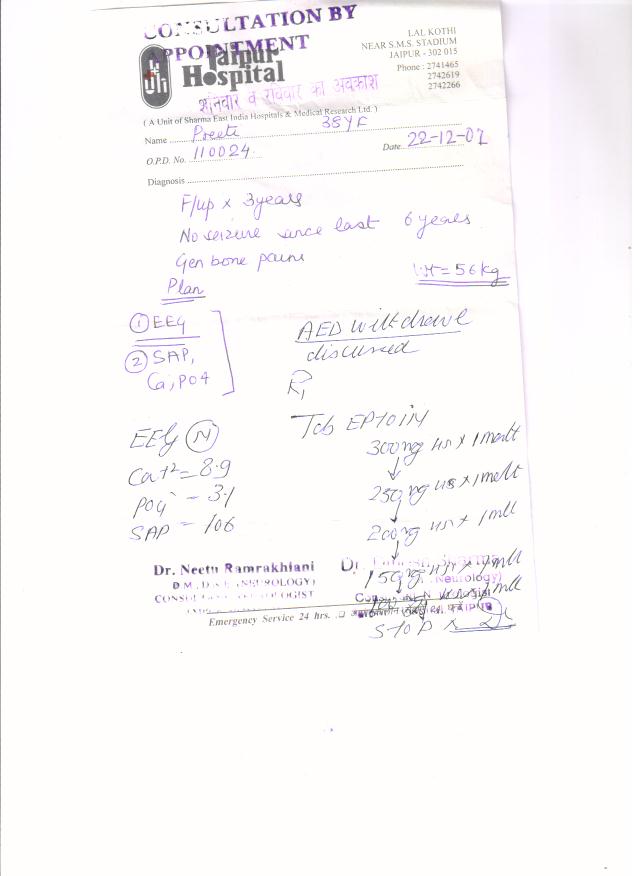 CONSULTATION BY
APPOINTMENT
Jaipur
Hospital
शनिवार व रविवार का अवकाश
LAL KOTHI
NEAR S.M.S. STADIUM
JAIPUR - 302 015
Phone : 2741465
2742619
2742266
( A Unit of Sharma East India Hospitals & Medical Research Ltd. )
Name Preeti 38 Y F
O.P.D. No. 110024 Date 22-12-07
Diagnosis
F/up x 3 years
No seizure since last 6 years
Gen bone pains
Wt = 56 kg
Plan
① EEG
② SAP,
Ca, PO4
AED withdrawl
discussed
Tab EPTOIN
300mg HS x 1 month
250mg HS x 1 month
200mg HS x 1 mth
150mg HS x 1 mth
HS x 1 mth
STOP x
EEG N
Ca+2 = 8.9
PO4 - 3.1
SAP - 106
Dr. Neetu Ramrakhiani
(NEUROLOGY)
CONSULTANT NEUROLOGIST
Neurology)
JAIPUR
Emergency Service 24 hrs.